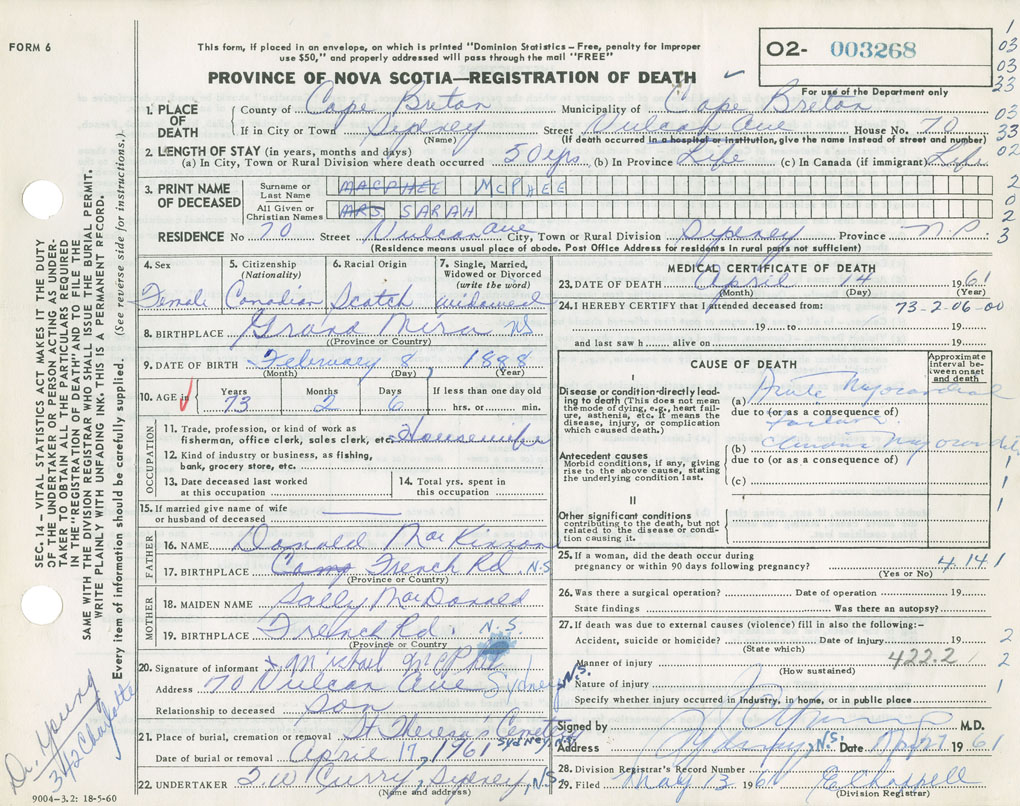 FORM 6
This form, if placed in an envelope, on which is printed "Dominion Statistics – Free, penalty for improper
use $50," and properly addressed will pass through the mail "FREE"
PROVINCE OF NOVA SCOTIA—REGISTRATION OF DEATH
O2- 003268
For use of the Department only
1
03
03
23
03
33
02
2
0
2
3
1. PLACE OF DEATH
County of Cape Breton Municipality of Cape Breton
If in City or Town Sydney Street Vulcan Ave House No. 70
(Name) (If death occurred in a hospital or institution, give the name instead of street and number)
2. LENGTH OF STAY (in years, months and days)
(a) In City, Town or Rural Division where death occurred 50 yrs (b) In Province Life (c) In Canada (if immigrant) Life
3. PRINT NAME OF DECEASED
Surname or Last Name MACPHEE MCPHEE
All Given or Christian Names MRS SARAH
RESIDENCE No 70 Street Vulcan Ave City, Town or Rural Division Sydney Province N.S.
(Residence means usual place of abode. Post Office Address for residents in rural parts not sufficient)
4. Sex Female
5. Citizenship (Nationality) Canadian
6. Racial Origin Scotch
7. Single, Married, Widowed or Divorced (write the word) widowed
8. BIRTHPLACE Grand Mira NS
(Province or Country)
9. DATE OF BIRTH February 8, 1888
(Month) (Day) (Year)
10. AGE in Years 73 Months 2 Days 6 If less than one day old
hrs. or min.
OCCUPATION
11. Trade, profession, or kind of work as
fisherman, office clerk, sales clerk, etc. Housewife
12. Kind of industry or business, as fishing,
bank, grocery store, etc.
13. Date deceased last worked
at this occupation
14. Total yrs. spent in
this occupation
15. If married give name of wife
or husband of deceased
FATHER
16. NAME Donald MacKinnon
17. BIRTHPLACE Camp French Rd. N.S.
(Province or Country)
MOTHER
18. MAIDEN NAME Sally MacDonald
19. BIRTHPLACE French Rd. N.S.
(Province or Country)
20. Signature of informant x Michael McPhee
Address 70 Vulcan Ave Sydney N.S.
Relationship to deceased Son
21. Place of burial, cremation or removal St Theresa's Sydney, N.S.
Date of burial or removal April 17, 1961
22. UNDERTAKER T.W Curry, Sydney, N.S.
(Name and address)
MEDICAL CERTIFICATE OF DEATH
23. DATE OF DEATH April 14 1961
(Month) (Day) (Year)
24. I HEREBY CERTIFY that I attended deceased from: 73-2-06-00
19 to 19
and last saw h alive on 19
CAUSE OF DEATH
Approximate interval between onset and death
I
Disease or condition directly leading to death (This does not mean the mode of dying, e.g., heart failure, asthenia, etc. It means the disease, injury, or complication which caused death.)
(a) Acute Myocardial
due to (or as a consequence of)
failure
Antecedent causes
Morbid conditions, if any, giving rise to the above cause, stating the underlying condition last.
(b) Chronic
due to (or as a consequence of)
(c)
1
1
1
II
Other significant conditions
contributing to the death, but not related to the disease or condition causing it.
25. If a woman, did the death occur during
pregnancy or within 90 days following pregnancy? 4.14 1
(Yes or No)
26. Was there a surgical operation? Date of operation 19
State findings Was there an autopsy?
27. If death was due to external causes (violence) fill in also the following:-
Accident, suicide or homicide? Date of injury 19 2
(State which)
Manner of injury 422.2 1 2
(How sustained)
Nature of injury 1
Specify whether injury occurred in industry, in home, or in public place
Signed by Young M.D.
Address Sydney, N.S. Date 1961
28. Division Registrar's Record Number
29. Filed May 13 1961 E Chappell
(Division Registrar)
SEC. 14 – VITAL STATISTICS ACT MAKES IT THE DUTY
OF THE UNDERTAKER OR PERSON ACTING AS UNDER-
TAKER TO OBTAIN ALL THE PARTICULARS REQUIRED
IN THE "REGISTRATION OF DEATH" AND TO FILE THE
SAME WITH THE DIVISION REGISTRAR WHO SHALL ISSUE THE BURIAL PERMIT.
WRITE PLAINLY WITH UNFADING INK. THIS IS A PERMANENT RECORD.
Every item of information should be carefully supplied. (See reverse side for instructions.)
Dr. Young
342 Charlotte
9004–3.2: 18-5-60